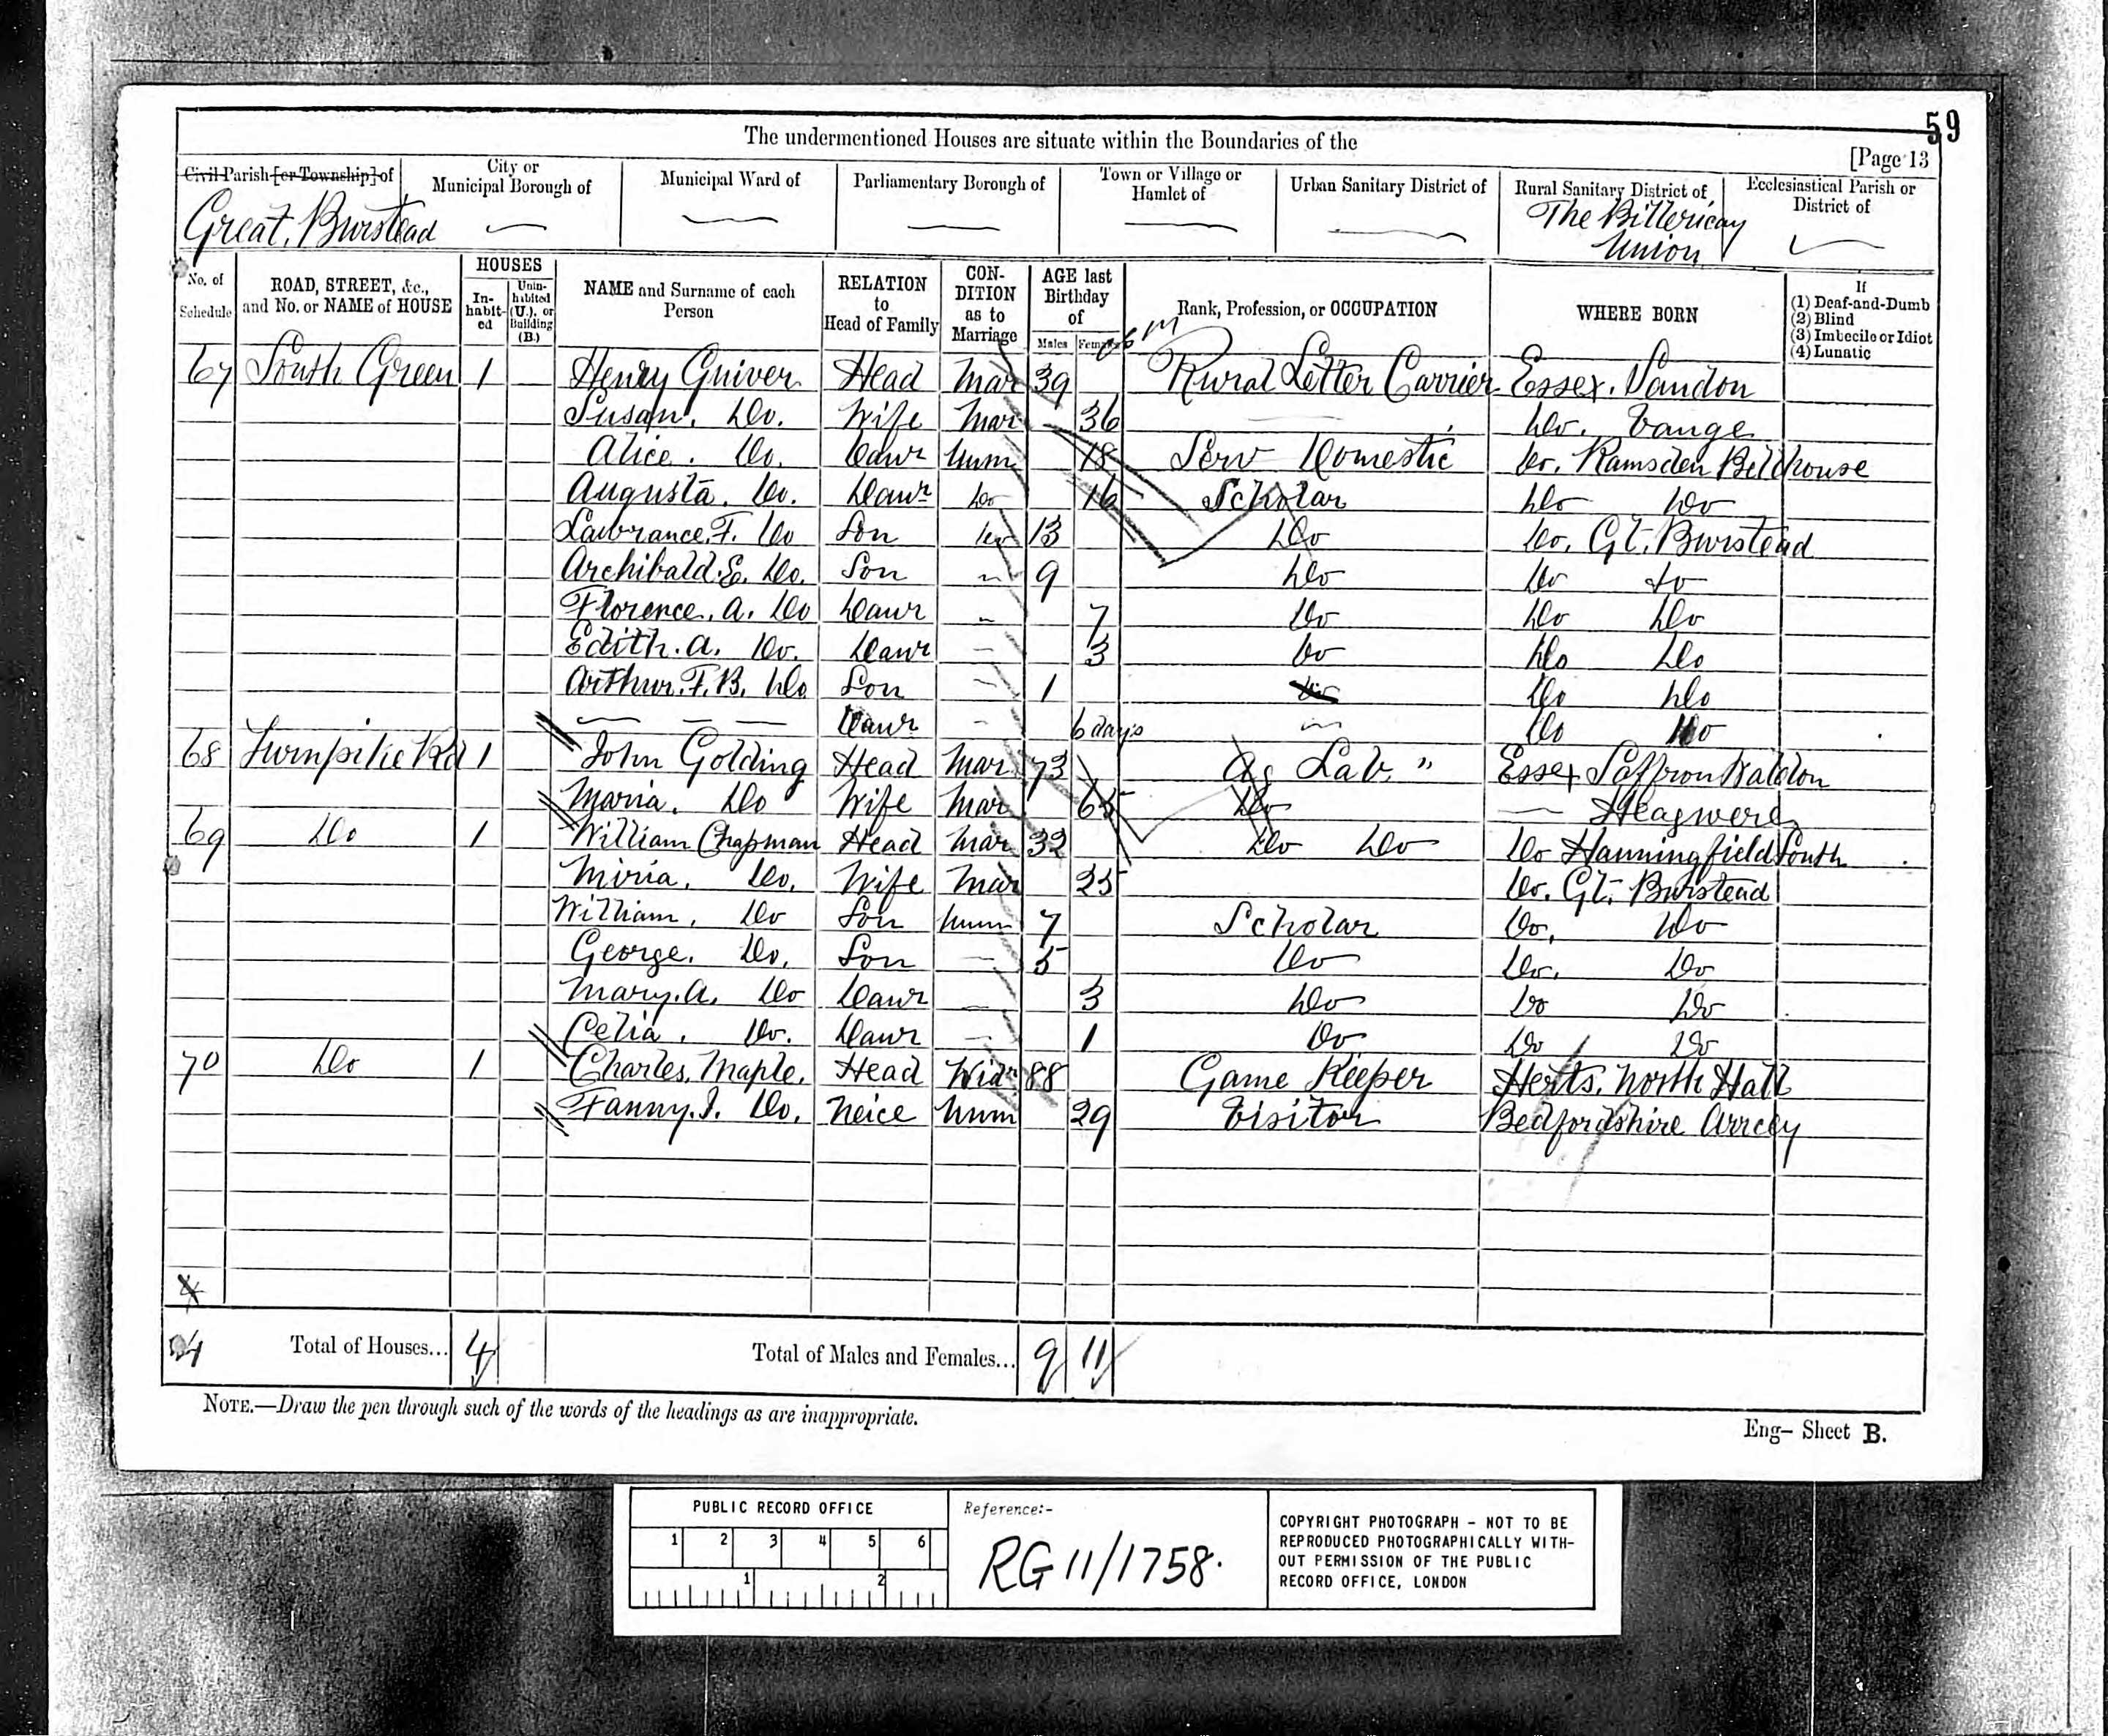 59
The undermentioned Houses are situate within the Boundaries of the
[Page 13
Civil Parish [or Township] of
City or Municipal Borough of
Municipal Ward of
Parliamentary Borough of
Town or Village or Hamlet of
Urban Sanitary District of
Rural Sanitary District of
Ecclesiastical Parish or District of
Great Burstead
The Billericay Union
No. of Schedule
ROAD, STREET, &c., and No. or NAME of HOUSE
HOUSES
In-habit-ed
Unin-habited (U.), or Building (B.)
NAME and Surname of each Person
RELATION to Head of Family
CON-DITION as to Marriage
AGE last Birthday of
Males
Females
Rank, Profession, or OCCUPATION
WHERE BORN
If
(1) Deaf-and-Dumb
(2) Blind
(3) Imbecile or Idiot
(4) Lunatic
67 South Green 1 — Henry Guiver Head Mar 39 Rural Letter Carrier Essex. Sandon
Susan. Do. Wife Mar 36 Do. Vange
Alice. Do. Daur Unm 18 Serv Domestic Do. Ramsden Bellhouse
Augusta. Do. Daur Do 16 Scholar Do Do
Lawrance. F. Do Son Do 13 Do Do. Gt. Burstead
Archibald. E. Do. Son — 9 Do Do do
Florence. A. Do Daur — 7 Do Do Do
Edith. A. Do. Daur — 3 Do Do Do
Arthur. F. B. Do Son — 1 Do Do Do
— — — Daur — 6 days — Do Do
68 Turnpike Rd 1 John Golding Head Mar 73 Ag Lab. " Essex Saffron Waldon
Maria. Do Wife Mar 65 Do —
69 Do 1 William Chapman Head Mar 32 Do Do Do Hanningfield South
Miria. Do. Wife Mar 25 Do. Gt. Burstead
William. Do Son Unm 7 Scholar Do. Do
George. Do. Son — 5 Do Do. Do
Mary. A. Do Daur — 3 Do Do Do
Celia. Do. Daur — 1 Do Do Do
70 Do 1 Charles. Maple. Head Widr 88 Game Keeper Herts. North Hall
Fanny. J. Do. Neice Unm 29 Visitor Bedfordshire
4
4 Total of Houses... 4 Total of Males and Females... 9 11
NOTE.—Draw the pen through such of the words of the headings as are inappropriate.
Eng– Sheet B.
PUBLIC RECORD OFFICE
1 2 3 4 5 6
1 2
Reference:-
RG 11/1758.
COPYRIGHT PHOTOGRAPH – NOT TO BE
REPRODUCED PHOTOGRAPHICALLY WITH-
OUT PERMISSION OF THE PUBLIC
RECORD OFFICE, LONDON